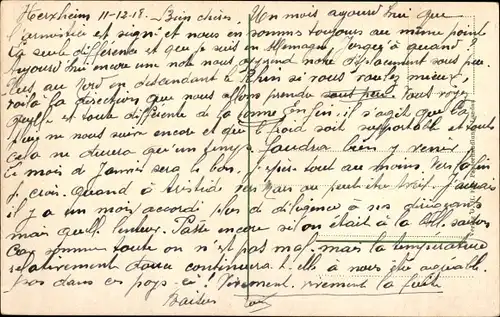 Herxheim 11-12-18. Bien chère. Un mois aujourd'hui que
l'armistice est signé et nous en sommes toujours au même point
la seule différence est que je suis en Allemagne. Jusqu'à quand!
Aujourd'hui encore une note nous apprend notre déplacement sous peu.
Plus au Nord en descendant le Rhin si vous voulez mieux,
voilà la direction que nous allons prendre sous peu. Vous voyez
qu'elle est toute différente de la bonne. Enfin, il s'agit que la
pluie ne nous suive encore et que le froid soit supportable et tout
cela ne durera qu'un temps. Faudra bien y venir
le mois de Janvier sera le bon. J'espère tout au moins. Vers la fin
je crois. Quand à Aristide
il y a un mois accordé plus de diligence à ses
mais quelle lenteur. Passe encore si on était à la
car somme toute on n'est pas mal, mais la température
relativement douce continuera-t-elle à nous être agréable
pas dans ce pays-ci! Vivement, vivement la fuite
Baisers